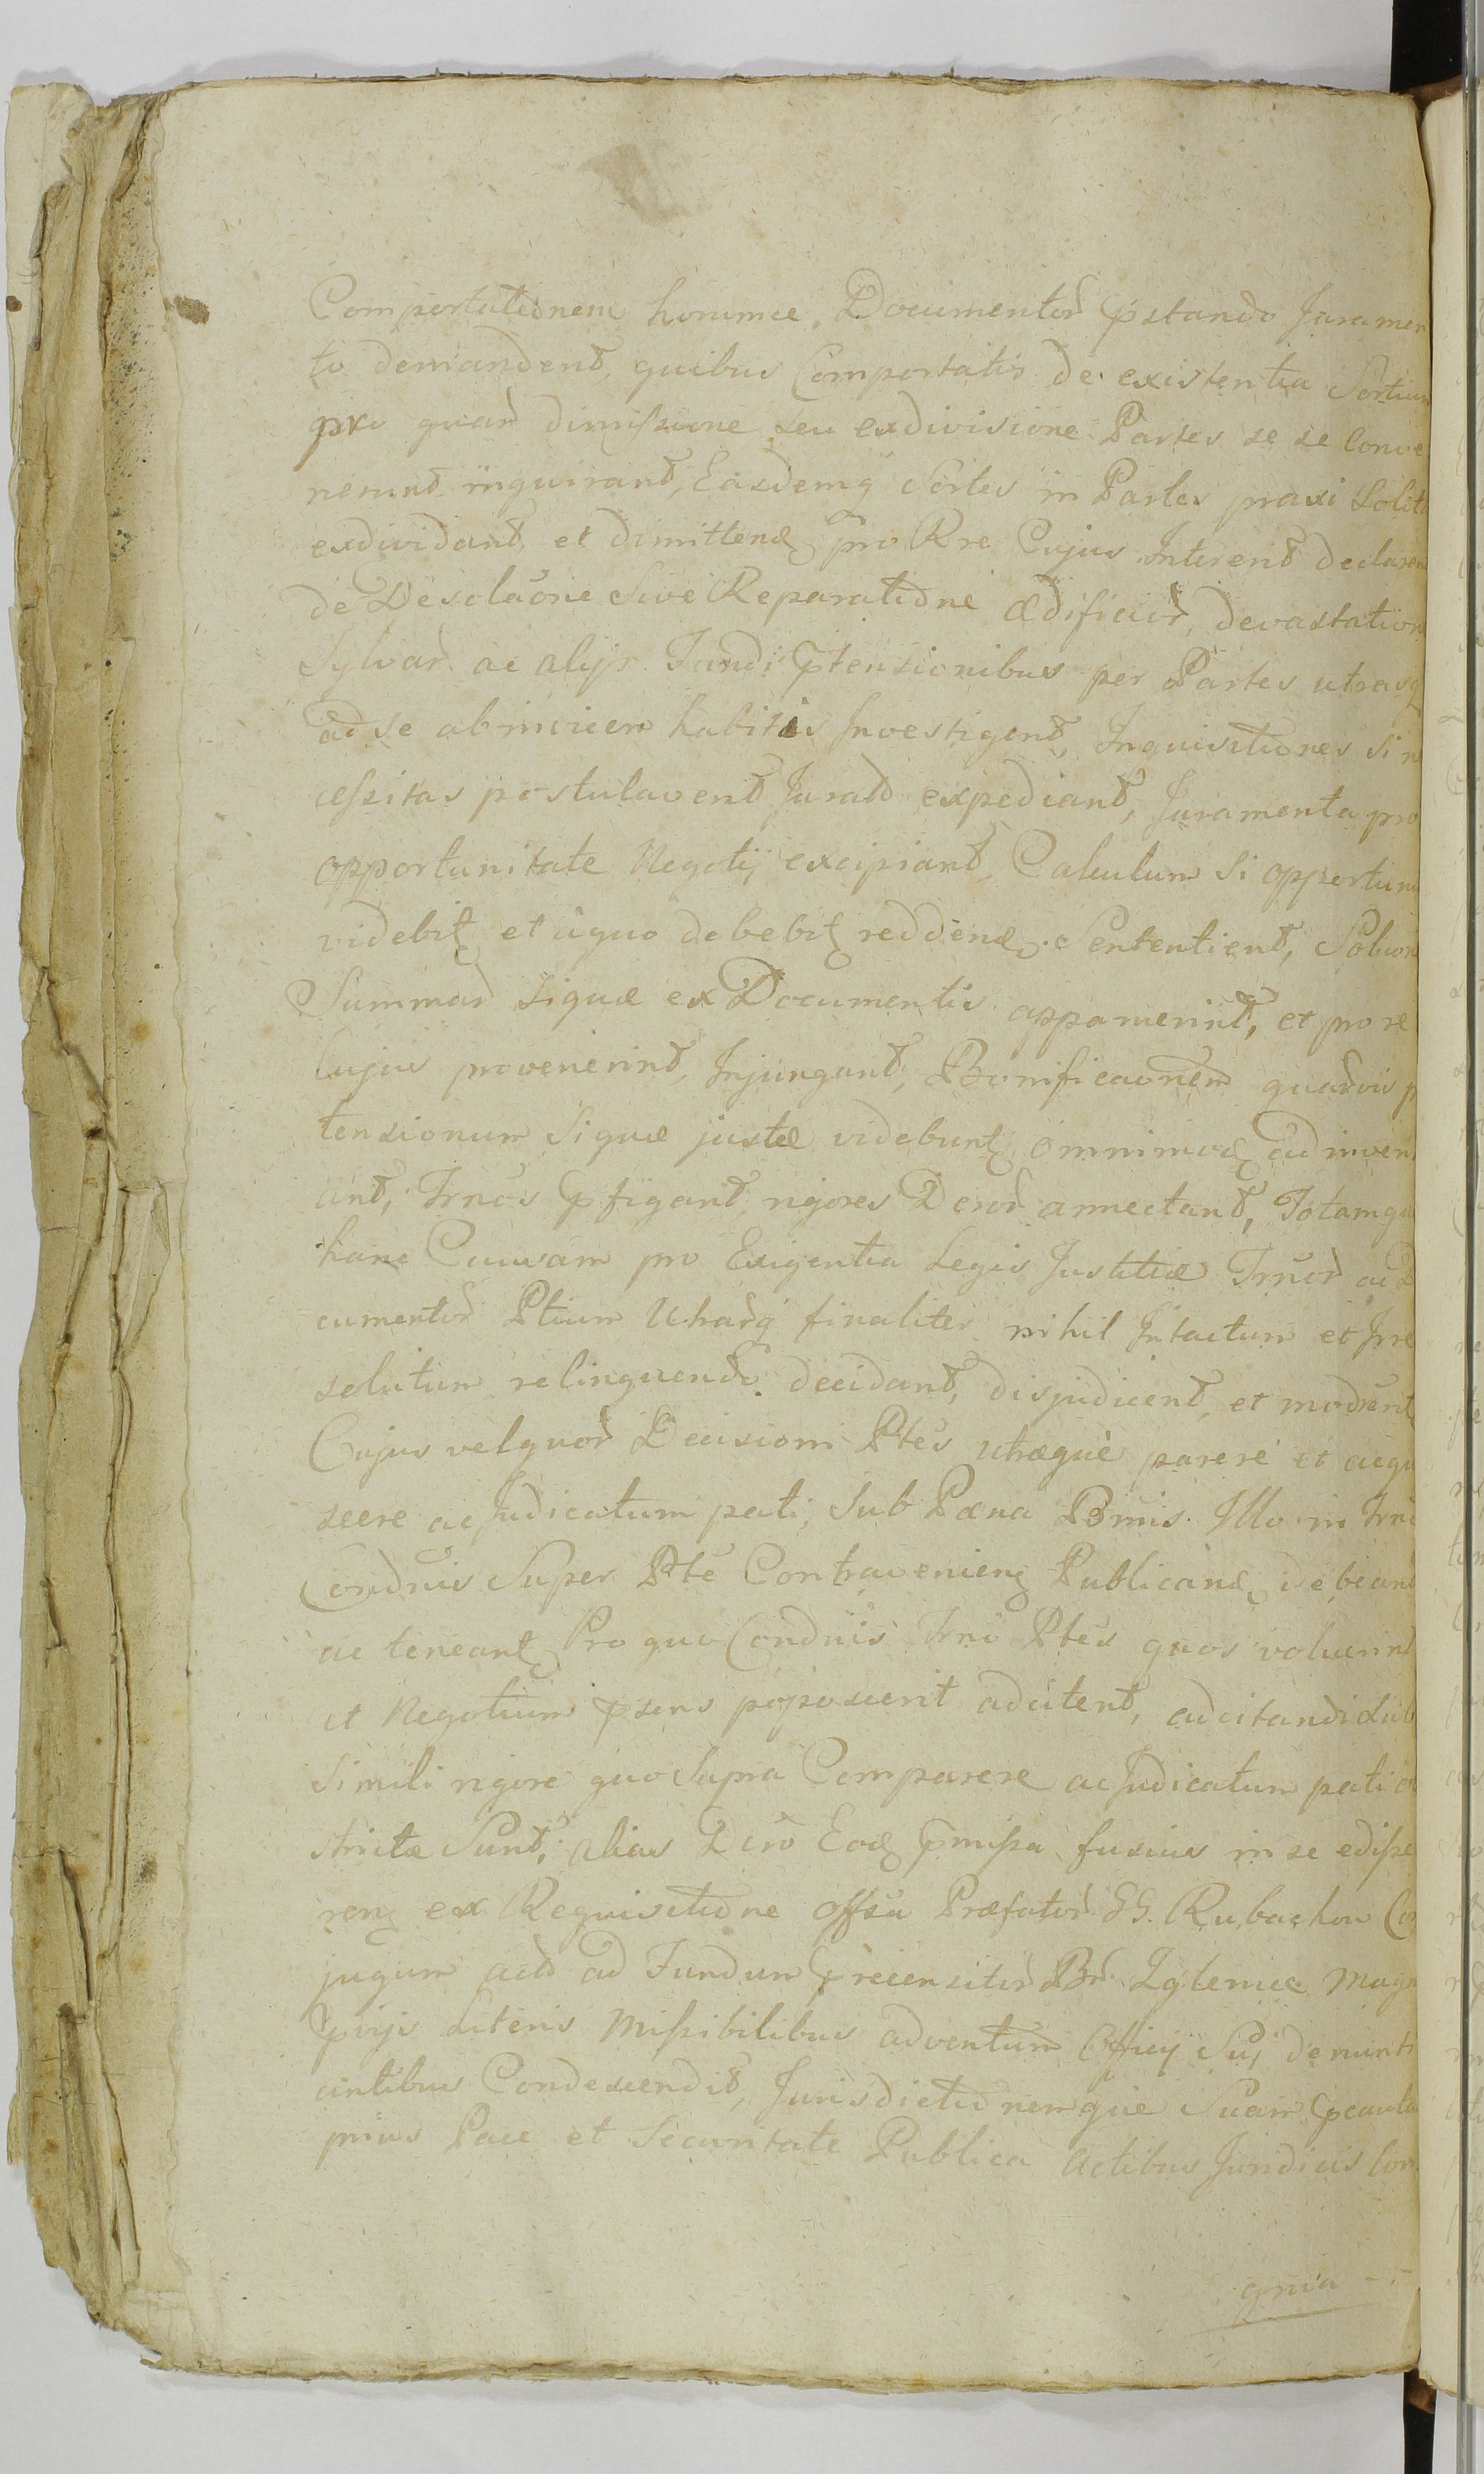 Comportationem horumce Documentor pstando Juramen
to demandent, quibus Comportatis de existentia Sortium
pro quar dimissione seu exdivisione Partes se se Conve
nerunt inquirant, Easdemq Sortes in Partes praxi Solit
exdividant et dimittend pro Re Cujus Intererit declarent
de Desolaone Sive Reparatione ædificior, devastation
Sylvar ac alijs Fundi ptensionibus per Partes utrasq
ad se ab invicem habitis Investigent, Inquisitiones Si n
cessitas postulaverit Jurato expediant, Juramenta pro
opportunitate Negotij excipiant Calculum Si opportunu
videbit et a quo debebit reddend Sententient, Soluon
Summar Siquæ ex Documentis apparuerint, et pro re
Cujus provenerint, Injungant, Bonificaonem quarvis p
tensionum Siquæ justæ videbunt omnimod ad inveni
ant, Trnos pfigant rigores Decr annectant, Totamqu
hanc Causam pro Exigentia Legis Justitiæ Trnor ac D
cumentor Ptium Utharq finaliter nihil Intactum et Irre
solutum relinquendo decidant, disjudicent et moderent
Cujus vel quor Decisioni Ptes utræque parere et acqui
scere ac Judicatum pati, Sub Pæna Bnnis Illo in Trno
Condnis Super Pte Contravenien Publicand debeant
ac teneant Pro quo Condnis Trno Ptes quos voluerint
et Negotium psens poposcerit adcitent, adcitandi Sub
Simili rigore quo Supra Comparere ac Judicatum pati ad
strictæ Sunt, alias Dcro Eod pmissa fusius in se edisse
ren ex Requisitione offsa Præfator GG. Rubachow Con
jugum acto ad Fundum precensitor Br Iglenice Magn
pvijs Literis Missibilibus adventum Officij Sui denunti
antibus Condescendit, Jurisdictionemque Suam pcauta
prius Pace et Securitate Publica Actibus Juridicis Con
grua